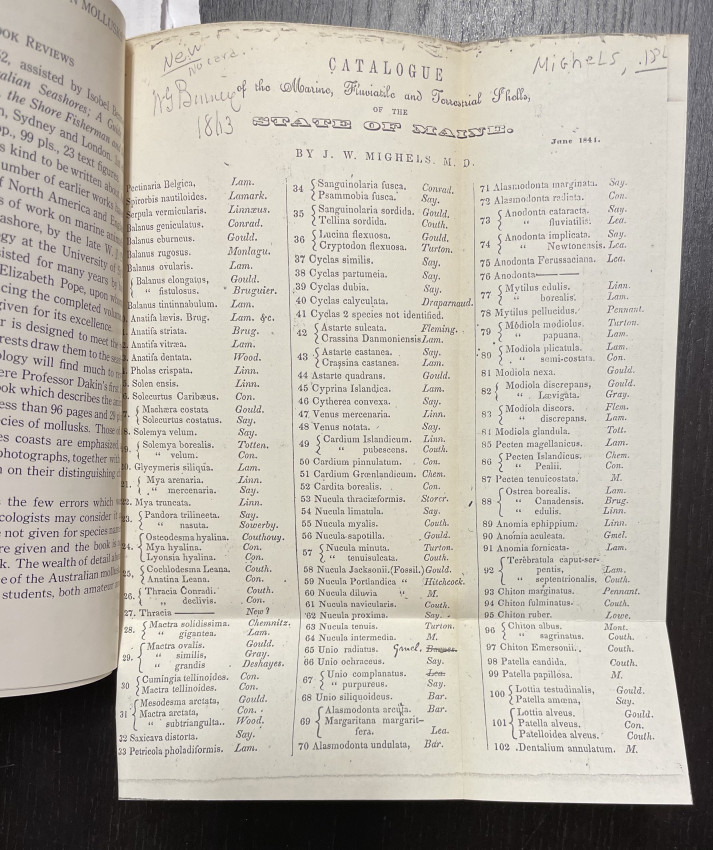 N MOLLUSK
OOK REVIEWS
52, assisted by Isobel
alian Seashores; A Guide
the Shore Fisherman and
n, Sydney and London.
pp., 99 pls., 23 text figures
s kind to be written about
umber of earlier works
of North America and
s of work on marine
ashore, by the late W. J.
gy at the University of
sisted for many years by
Elizabeth Pope, upon whom
cing the completed volume
given for its excellence.
r is designed to meet the
rests draw them to the sea
ology will find much to
ere Professor Dakin's first
ook which describes the
ess than 96 pages and 29
ecies of mollusks. Those
es coasts are emphasized
photographs, together with
n on their distinguishing
the few errors which
cologists may consider it
not given for species names
re given and the book is
k. The wealth of detail
e of the Australian mollusks
students, both amateur
New
no card.
W G Binney
1863
Mighels, 184
CATALOGUE
of the Marine, Fluviatile and Terrestrial Shells,
OF THE
STATE OF MAINE.
June 1841.
BY J. W. MIGHELS. M. D.
Pectinaria Belgica, Lam.
Spirorbis nautiloides. Lamark.
Serpula vermicularis. Linnæus.
Balanus geniculatus. Conrad.
Balanus eburneus. Gould.
Balanus rugosus. Montagu.
Balanus ovularis. Lam.
Balanus elongatus, Gould.
" fistulosus. Bruguier.
Balanus tintinnabulum. Lam.
Anatifa lævis. Brug. Lam. &c.
Anatifa striata. Brug.
Anatifa vitræa. Lam.
Anatifa dentata. Wood.
Pholas crispata. Linn.
Solen ensis. Linn.
6. Solecurtus Caribæus. Con.
7. Machæra costata Gould.
Solecurtus costatus. Say.
8. Solemya velum. Say.
9. Solemya borealis. Totten.
" velum. Con.
20. Glycemeris siliqua. Lam.
21. Mya arenaria. Linn.
" mercenaria. Say.
22. Mya truncata. Linn.
23. Pandora trilineeta. Say.
" nasuta. Sowerby.
Osteodesma hyalina. Couthouy.
24. Mya hyalina. Con.
Lyonsia hyalina. Con.
25. Cochlodesma Leana. Couth.
Anatina Leana. Con.
26. Thracia Conradi. Couth.
" declivis. Con.
27. Thracia —— New?
28. Mactra solidissima. Chemnitz.
" gigantea. Lam.
Mactra ovalis. Gould.
29. " similis, Gray.
" grandis Deshayes.
30 Cumingia tellinoides. Con.
Mactra tellinoides. Con.
Mesodesma arctata, Gould.
31 Mactra arctata, Con.
" subtriangulta.. Wood.
32 Saxicava distorta. Say.
33 Petricola pholadiformis. Lam.
34 Sanguinolaria fusca. Conrad.
Psammobia fusca. Say.
35 Sanguinolaria sordida. Gould.
Tellina sordida. Couth.
36 Lucina flexuosa. Gould.
Cryptodon flexuosa. Turton.
37 Cyclas similis. Say.
38 Cyclas partumeia. Say.
39 Cyclas dubia. Say.
40 Cyclas calyculata. Draparnaud.
41 Cyclas 2 species not identified.
42 Astarte sulcata. Fleming.
Crassina Danmoniensis Lam.
43 Astarte castanea. Say.
Crassina castanea. Lam.
44 Astarte quadrans. Gould.
45 Cyprina Islandica. Lam.
46 Cytherea convexa. Say.
47 Venus mercenaria. Linn.
48 Venus notata. Say.
49 Cardium Islandicum. Linn.
" pubescens. Couth.
50 Cardium pinnulatum. Con.
51 Cardium Grœnlandicum. Chem.
52 Cardita borealis. Con.
53 Nucula thraciæformis. Storer.
54 Nucula limatula. Say.
55 Nucula myalis. Couth.
56 Nucula sapotilla. Gould.
57 Nucula minuta. Turton.
" tenuisulcata. Couth.
58 Nucula Jacksonii.(Fossil.) Gould.
59 Nucula Portlandica " Hitchcock.
60 Nucula diluvia " M.
61 Nucula navicularis. Couth.
62 Nucula proxima. Say.
63 Nucula tenuis. Turton.
64 Nucula intermedia. M.
65 Unio radiatus. Gmel. Barnes.
66 Unio ochraceus. Say.
67 Unio complanatus. Lea.
" purpureus. Say.
68 Unio siliquoideus. Bar.
Alasmodonta arcuta. Bar.
69 Margaritana margarit-
fera. Lea.
70 Alasmodonta undulata, Bar.
71 Alasmodonta marginata. Say.
72 Alasmodonta radiata. Con.
73 Anodonta cataracta. Say.
" fluviatilis. Lea.
74 Anodonta implicata. Say.
" Newtonensis. Lea.
75 Anodonta Ferussaciana. Lea.
76 Anodonta——
77 Mytilus edulis. Linn.
" borealis. Lam.
78 Mytilus pellucidus. Pennant.
79 Modiola modiolus. Turton.
" papuana. Lam.
80 Modiola plicatula. Lam.
" semi-costata. Con.
81 Modiola nexa. Gould.
82 Modiola discrepans, Gould.
" Lævigata. Gray.
83 Modiola discors. Flem.
" discrepans. Lam.
84 Modiola glandula. Tott.
85 Pecten magellanicus. Lam.
86 Pecten Islandicus. Chem.
" Pealii. Con.
87 Pecten tenuicostata. M.
Ostrea borealis. Lam.
88 " Canadensis. Brug.
" edulis. Linn.
89 Anomia ephippium. Linn.
90 Anomia aculeata. Gmel.
91 Anomia fornicata- Lam.
Terebratula caput-ser-
92 pentis, Lam.
" septentrionalis. Couth.
93 Chiton marginatus. Pennant.
94 Chiton fulminatus. Couth.
95 Chiton ruber. Lowe.
96 Chiton albus. Mont.
" sagrinatus. Couth.
97 Chiton Emersonii. Couth.
98 Patella candida. Couth.
99 Patella papillosa. M.
100 Lottia testudinalis, Gould.
Patella amœna, Say.
Lottia alveus, Gould.
101 Patella alveus. Con.
Patelloidea alveus. Couth.
102 Dentalium annulatum. M.